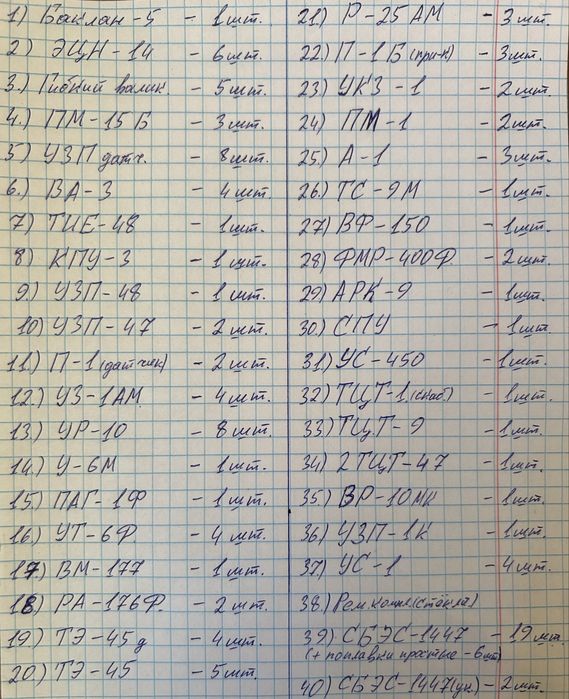 1) Баклан-5 - 1шт.
2) ЭЦН-14 - 6шт.
3.) Гибкий валик. - 5шт.
4.) ПМ-15Б - 3шт.
5) УЗП датч. - 8шт.
6.) ВА-3 - 4шт
7) ТИЕ-48 - 1шт.
8) КПУ-3 - 1шт.
9.) УЗП-48 - 1шт.
10) УЗП-47 - 2шт.
11.) П-1 (датчик) - 2шт.
12.) УЗ-1АМ - 4шт.
13.) УР-10 - 8шт.
14.) У-6М - 1шт.
15) ПАГ-1Ф - 1шт.
16.) УТ-6Ф - 4шт.
17.) ВМ-177 - 1шт.
18.) РА-176Ф. - 2шт.
19.) ТЭ-45д - 4шт.
20) ТЭ-45 - 5шт.
21) Р-25АМ - 3шт.
22.) П-1Б (при-к) - 3шт.
23) УКЗ-1 - 2шт.
24) ПМ-1 - 2шт.
25.) А-1 - 3шт.
26.) ТС-9М - 1шт.
27) ВФ-150 - 1шт.
28) ФМР-400Ф. - 2шт.
29.) АРК-9 - 1шт.
30.) СПУ - 1шт.
31) УС-450 - 1шт.
32) ТЦТ-1.(снаб.) - 1шт.
33) ТЦТ-9 - 1шт.
34) 2ТЦТ-47 - 1шт.
35.) ВР-10мк - 1шт.
36) УЗП-1к - 1шт.
37) УС-1 - 4шт.
38) Рем компл.(стёкла)
39) СБЭС-1447 - 19шт.
(+ поплавки простые - 6шт)
40) СБЭС-1447(ук.) - 2шт.